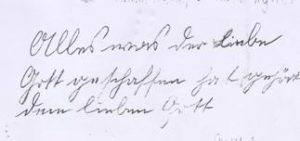 Alles was der Liebe
Gott geschaffen hat gehört
dem lieben Gott